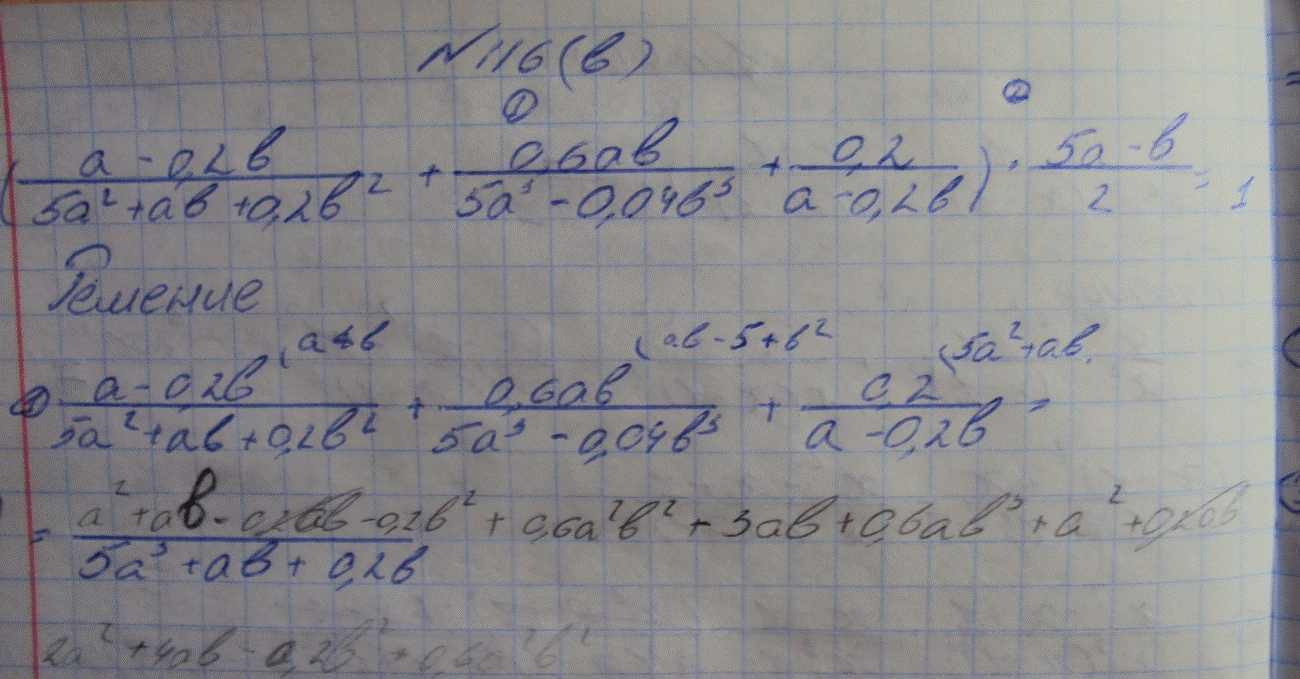 №116(в)
① ②
(a-0,2b)/(5a²+ab+0,2b²) + 0,6ab/(5a³-0,04b³) + 0,2/(a-0,2b)) · (5a-b)/2 = 1
Решение
(ab-5+b² (5a²+ab
① (a-0,2b)/(5a²+ab+0,2b²) + 0,6ab/(5a³-0,04b³) + 0,2/(a-0,2b) =
= (a²+ab-0,2ab-0,2b²+0,6a²b²+3ab+0,6ab³+a²+0,2ab)/(5a³+ab+0,2b)
2a²+4ab-0,2b²+0,6a²b²